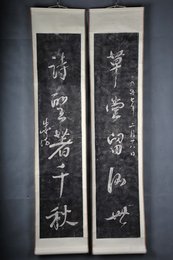 草堂留後世
詩聖著千秋
朱德